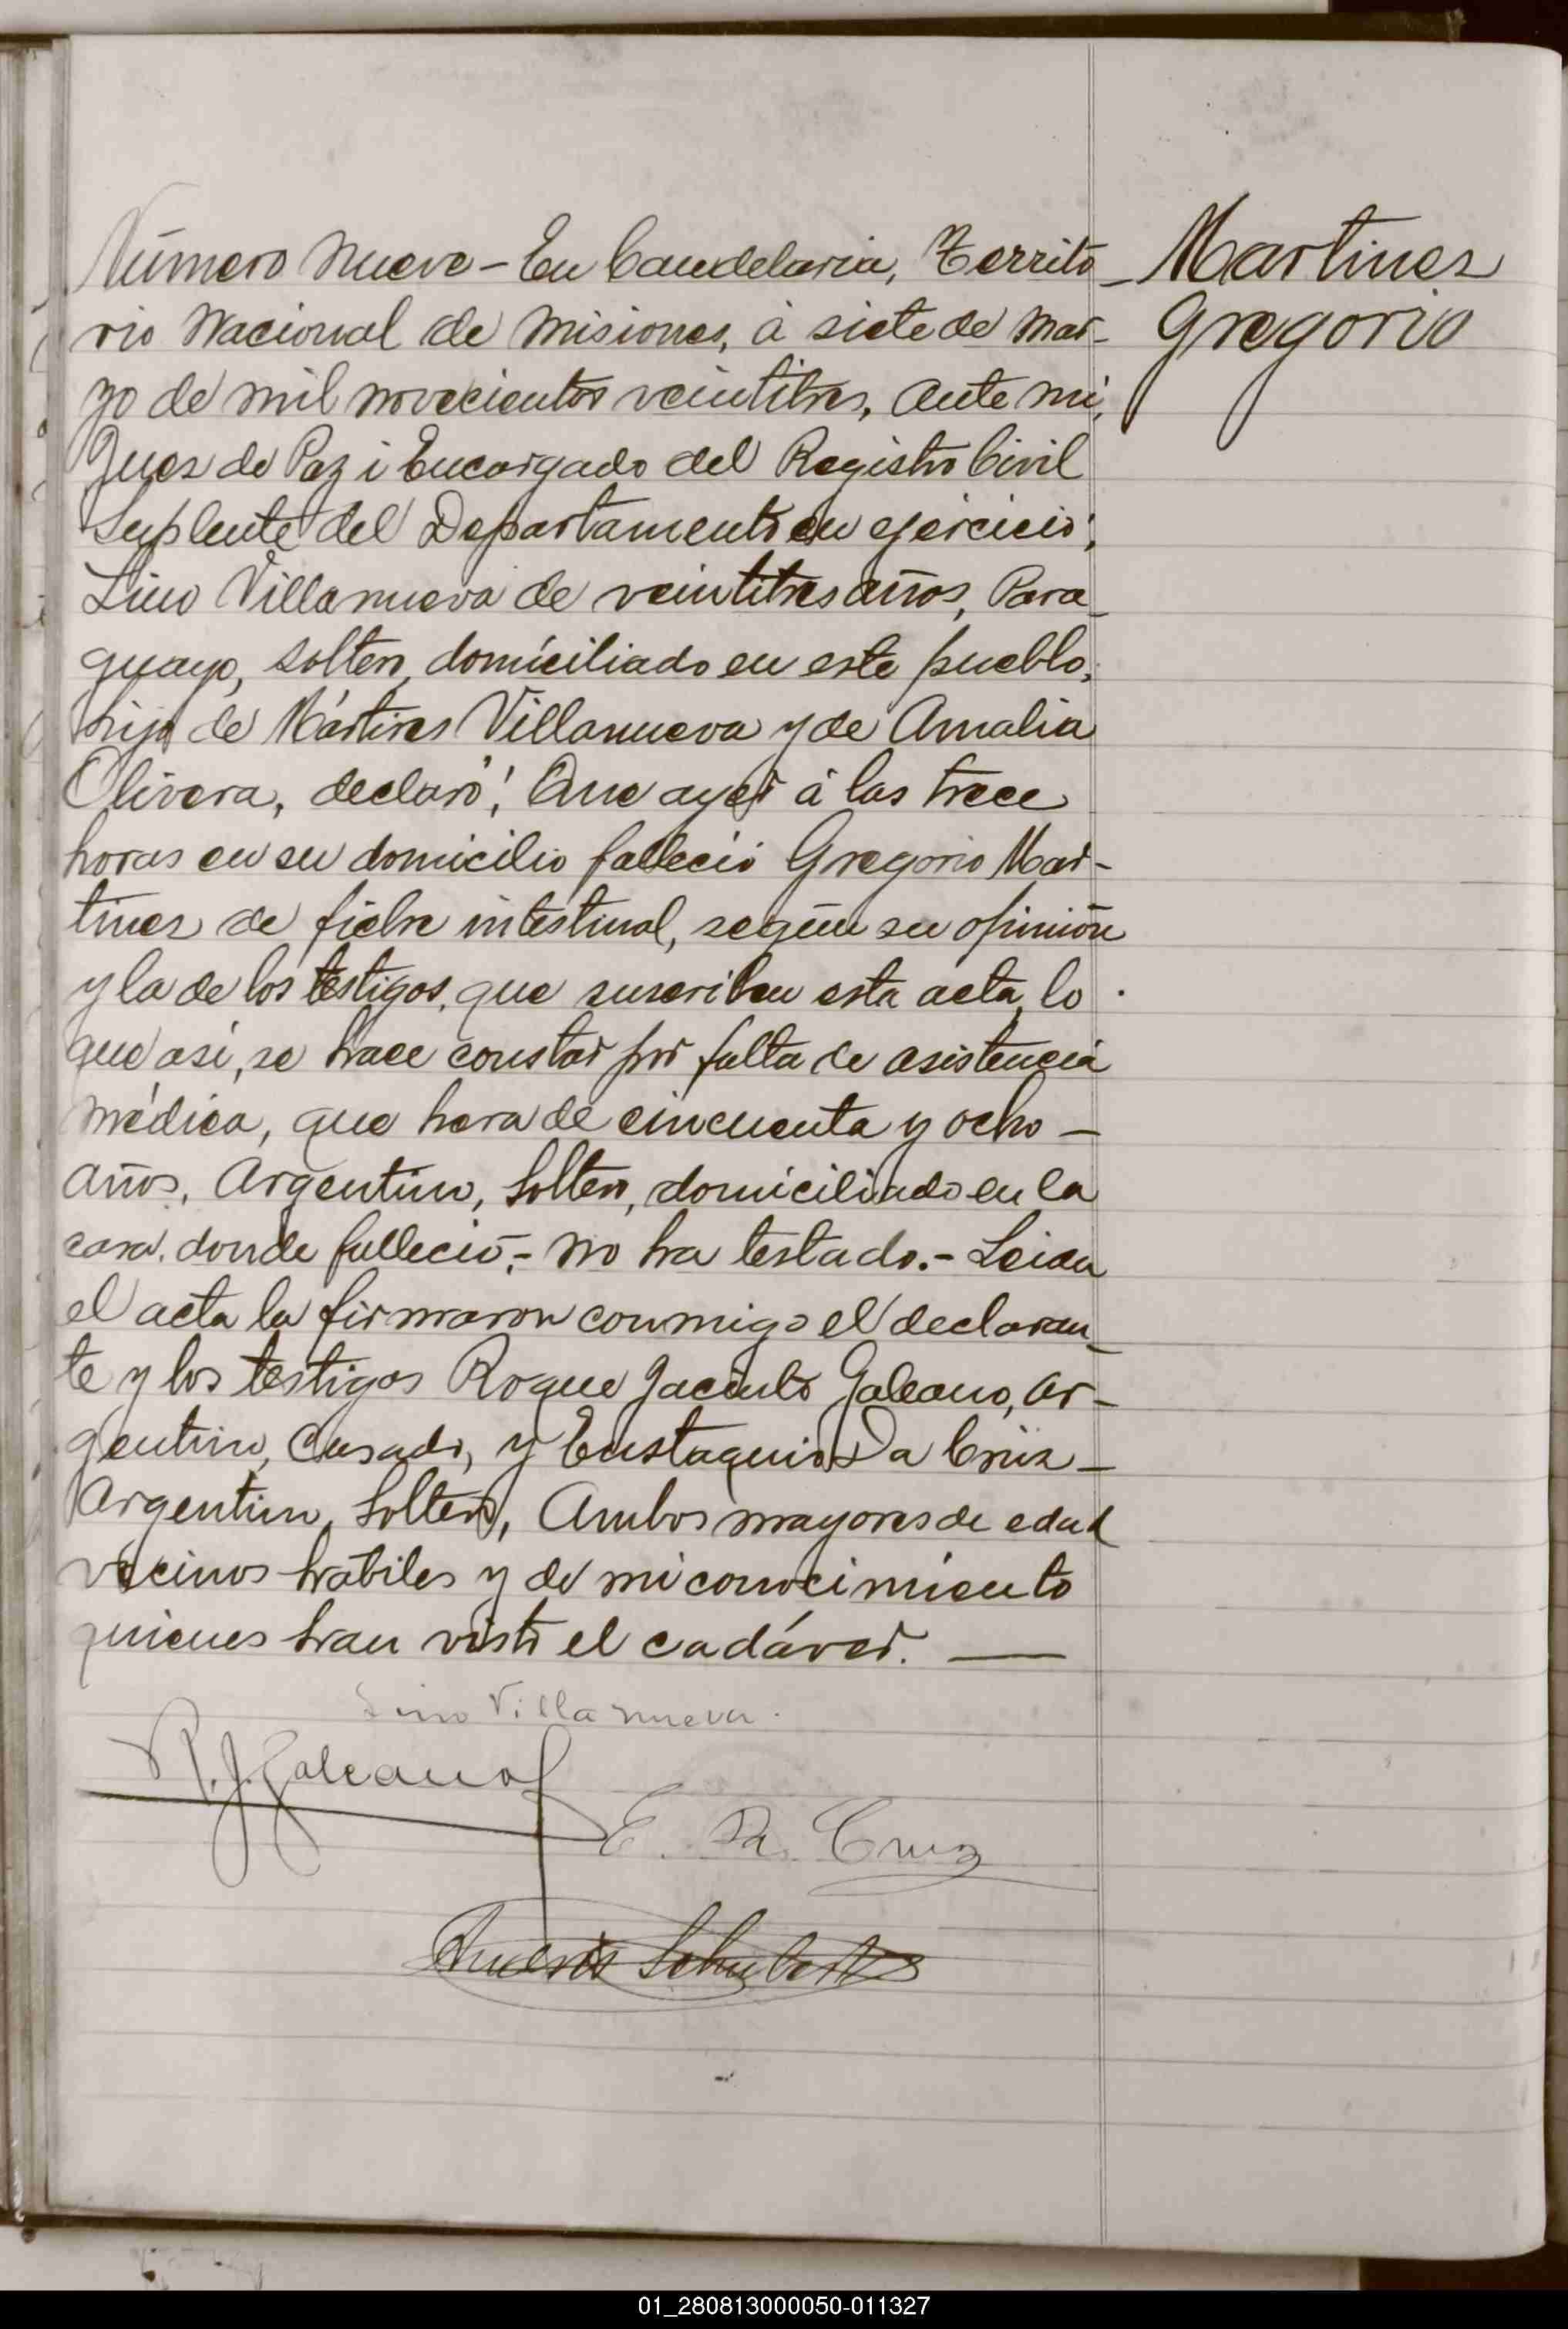 Número Nueve - En Candelaria, Territo
rio Nacional de Misiones, á siete de Mar-
zo de mil novecientos veintitres, Ante mi,
Juez de Paz i Encargado del Registro Civil
Suplente del Departamento en ejercicio;
Lino Villanueva de veintitres años, Para
guayo, soltero, domiciliado en este pueblo,
hijo de Mártires Villanueva y de Amalia
Olivera, declaró; Que ayer á las trece
horas en su domicilio falleció Gregorio Mar-
tines de fiebre intestinal, según su opinión
y la de los testigos, que suscriben esta acta, lo
que así, se hace constar por falta de asistencia
médica, que hera de cincuenta y ocho -
años, Argentino, Soltero, domiciliado en la
casa, donde falleció,- no ha testado.- Leida
el acta la firmaron conmigo el declaran
te y los testigos Roque Jacinto Galeano, Ar-
gentino, Casado, y Eustaquio Da Crúz -
Argentino, Soltero, Ambos mayores de edad
vecinos habiles y de mi conocimiento
quienes han visto el cadáver. —
Martines
Gregorio
Lino Villanueva.
R. J. Galeano
E. Da Cruz
Andrés Schubert
01_280813000050-011327